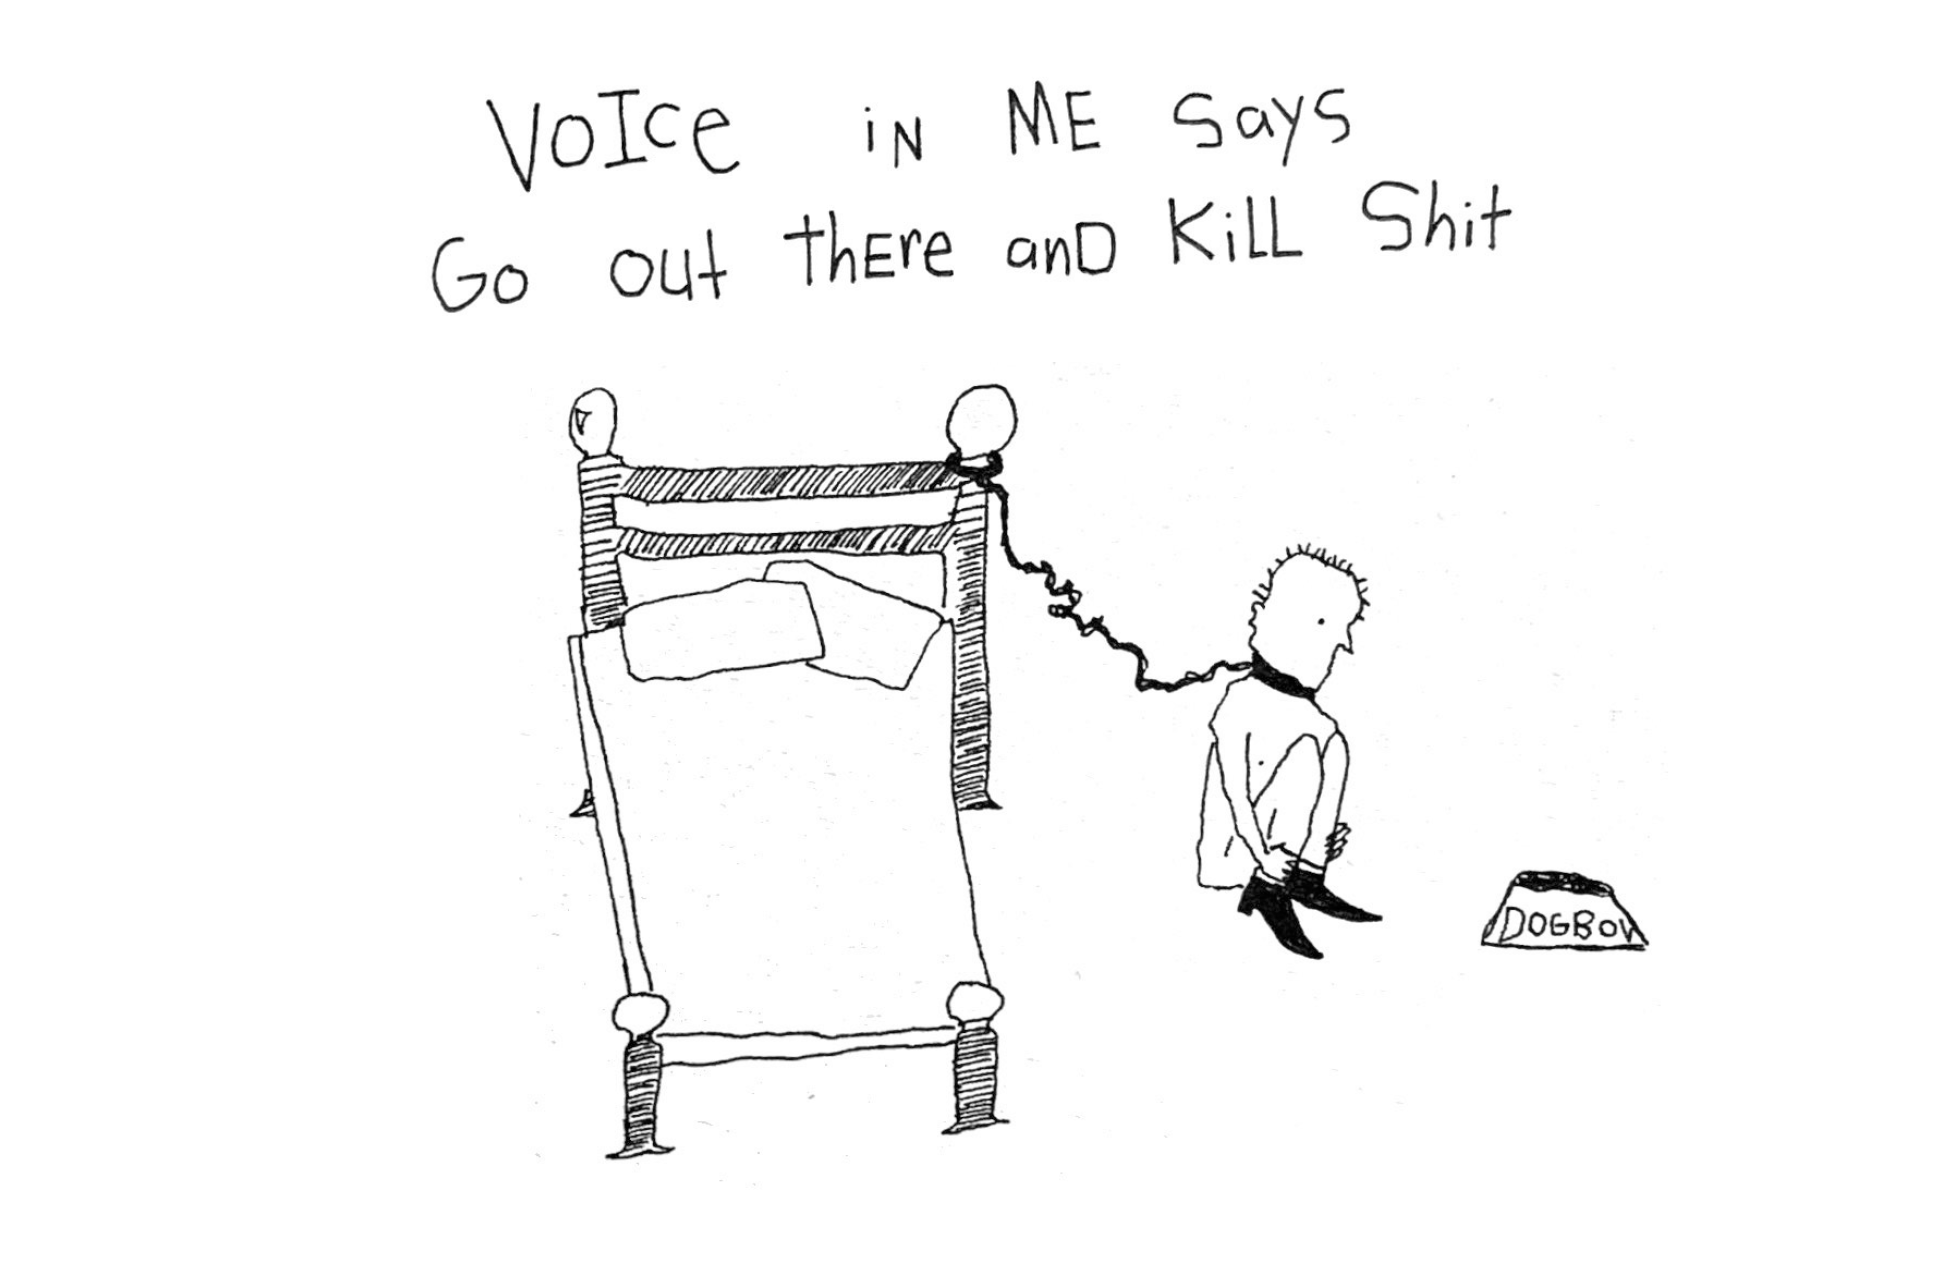 VoIce iN ME says
Go out thEre anD KiLL Shit
DOGBOW